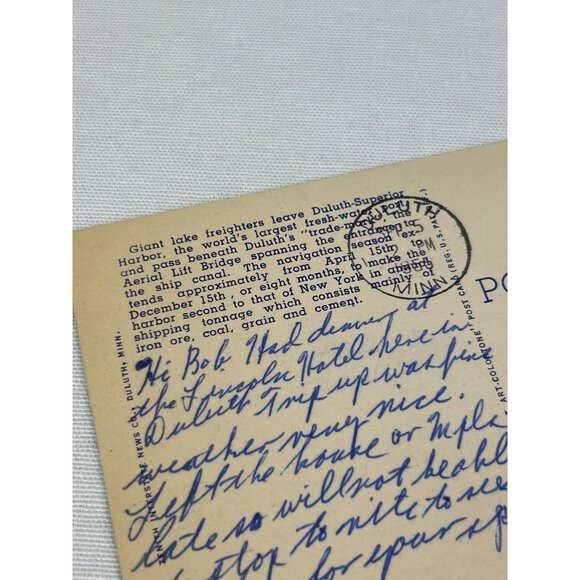 Giant lake freighters leave Duluth-Superior
Harbor, the world's largest fresh-water port
and pass beneath Duluth's "trade-mark", the
Aerial Lift Bridge, spanning the entrance to
the ship canal. The navigation season ex-
tends approximately from April 15th to
December 15th, or eight months, to make the
harbor second to that of New York in annual
shipping tonnage which consists mainly of
iron ore, coal, grain and cement.
DULUTH
SEP 5
PM
MINN
PO
ZENITH INTERSTATE NEWS CO., DULUTH, MINN.
ART-COLORTONE" POST CARD (REG. U.S. PA
Hi Bob. Had dinner at
the Lincoln Hotel here in
Duluth Trip up was fine
weather very nice.
Left the house or Mpls
late so will not be abl
stop to nite to see
for your